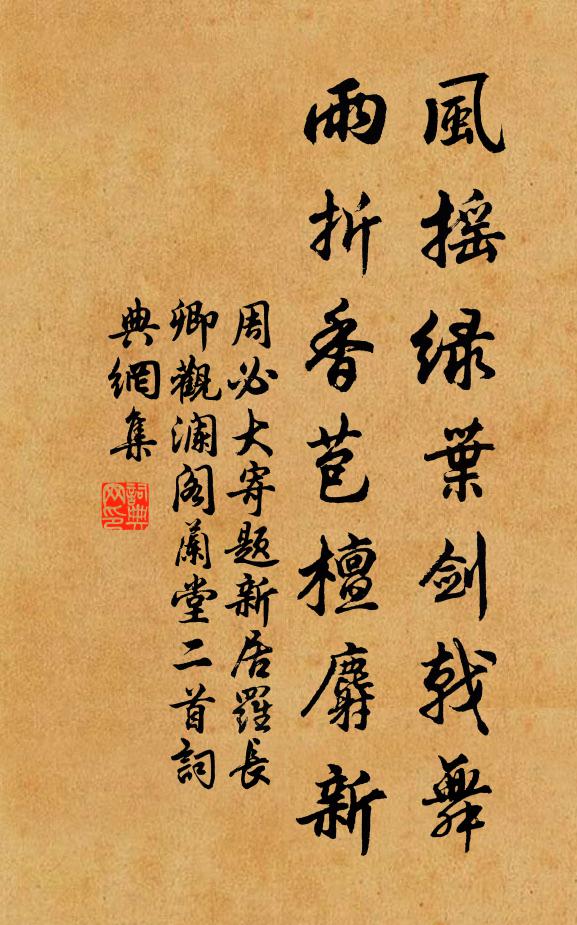 風摇绿葉劍戟舞
雨折香苞檀麝新
周必大寄题新居羅長
卿觀澜阁蘭堂二首詞
典網集
詞典网印